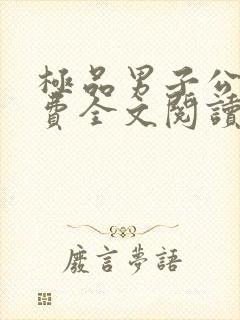 極品男子公
費全文閱讀
廢言夢語